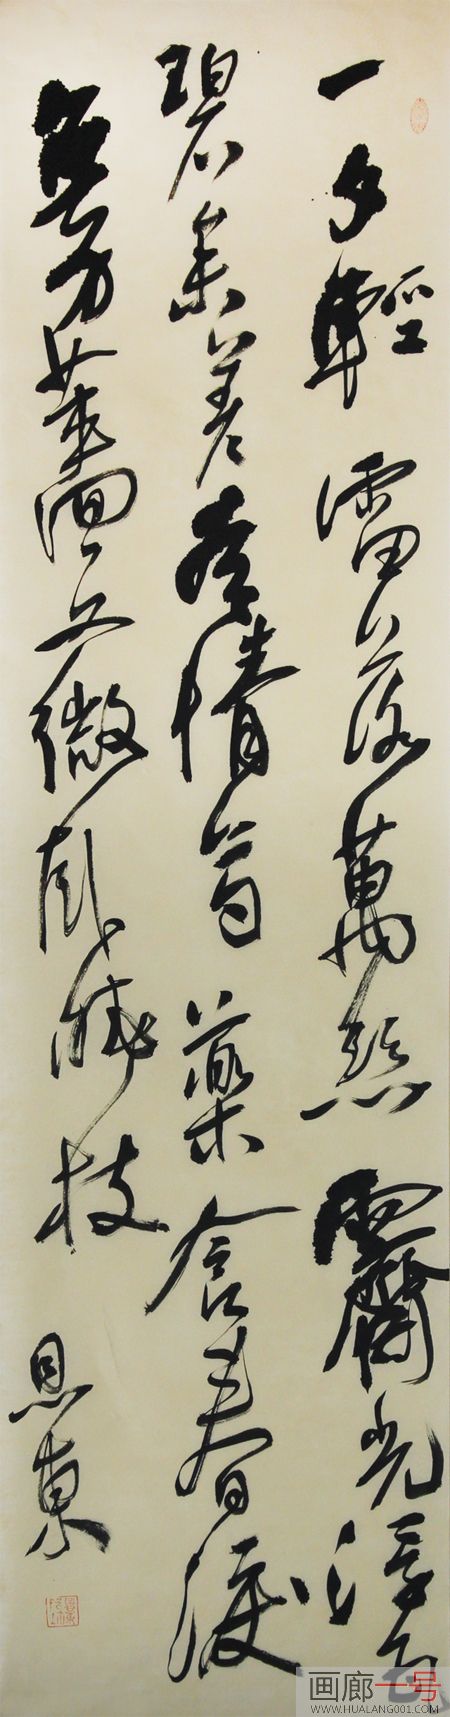 一夕輕雷落萬絲霽光浮瓦
碧參差有情芍藥含春淚
無力薔薇卧曉枝
東
画廊一号
WWW.HUALANG001.COM